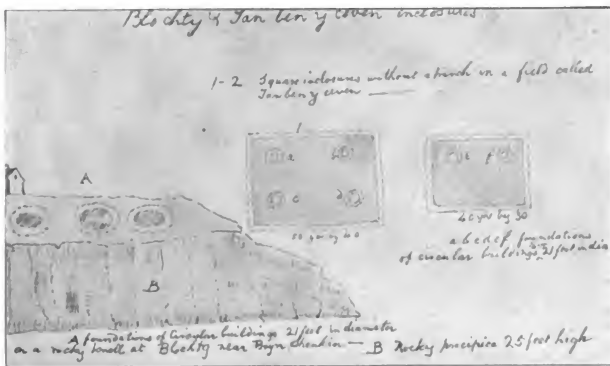 Blochty & Tan ben y ceven inclosures
1-2 Square inclosures without a trench in a field called
Tan ben y ceven
1
A
a
b
c
d
e
f
50 yds by 40
40 yds by 30
a b c d e f foundations
of circular buildings 21 feet in dia
B
A foundations of Circular buildings 21 feet in diameter
on a rocky knoll at Blochty near Bryn — B Rocky precipice 25 feet high